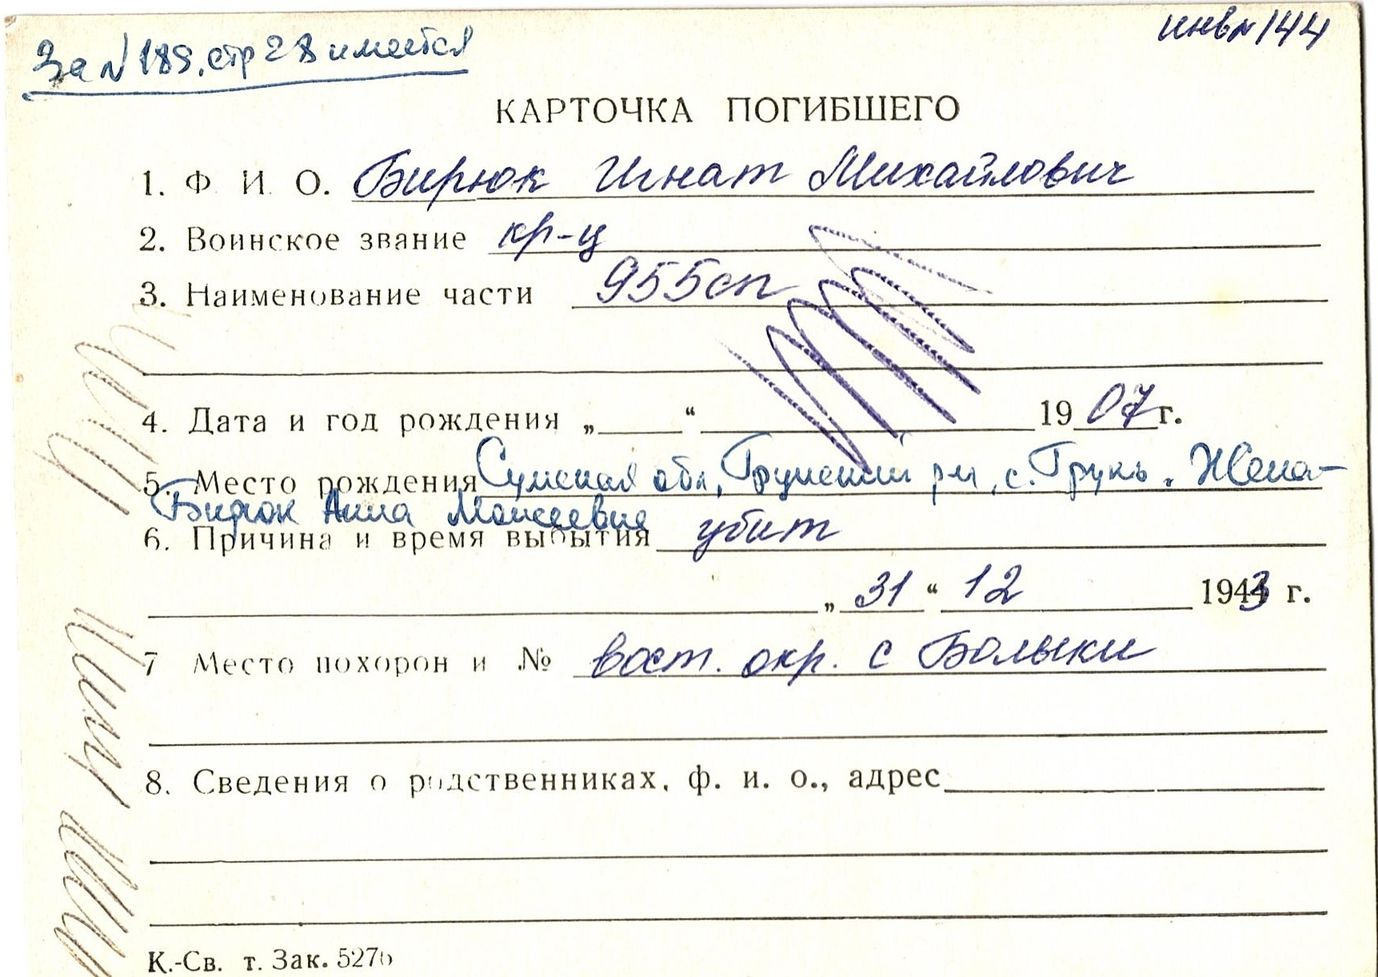 За N 189, стр 28 имеется
инв № 144
КАРТОЧКА ПОГИБШЕГО
1. Ф И О. Бирюк Игнат Михайлович
2. Воинское звание кр-ц
3. Наименование части 955сп
4. Дата и год рождения „ “ 1907г.
5. Место рождения Сумская обл, Грунский р-н, с. Грунь. Жена-
Бирюк Анна Моисеевна
6. Причина и время выбытия убит
„ 31 “ 12 1943 г.
7 Место похорон и № вост. окр. с Болыки
8. Сведения о родственниках, ф. и. о., адрес
К.-Св. т. Зак. 5276